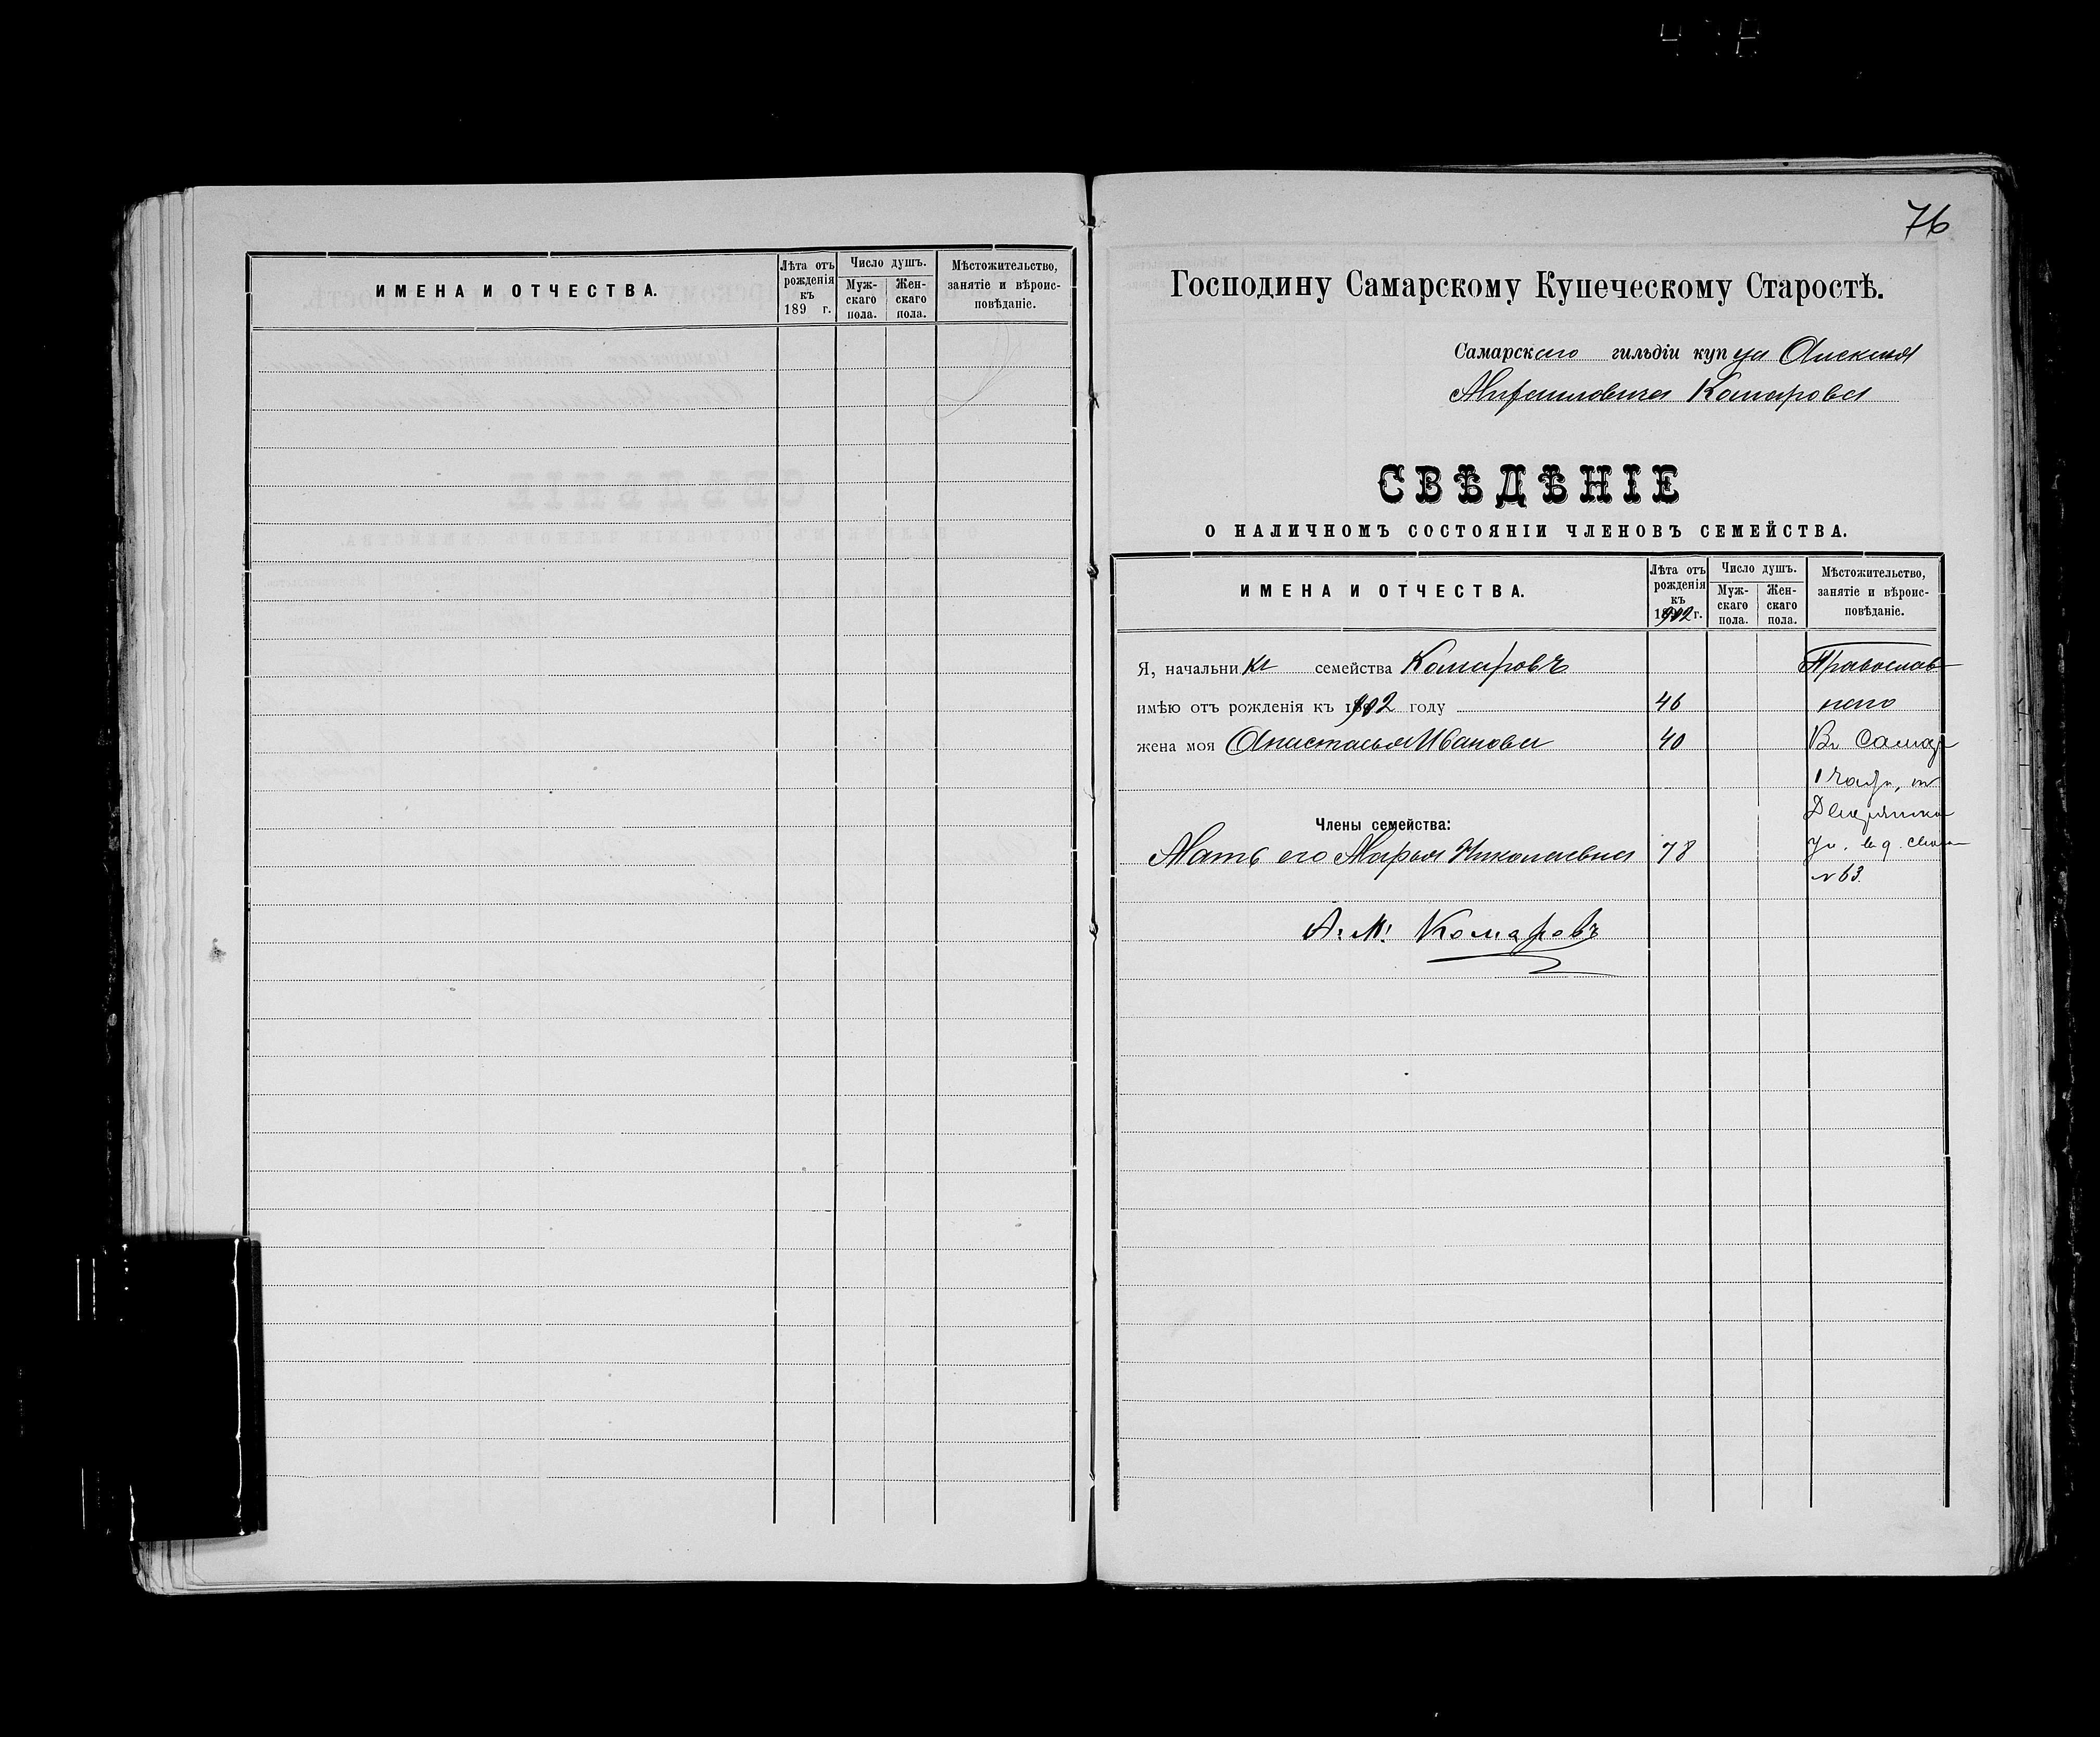 ИМЕНА И ОТЧЕСТВА.
Лѣта отъ рожденія къ 189 г.
Число душъ.
Мужскаго пола.
Женскаго пола.
Мѣстожительство, занятіе и вѣроисповѣданіе.
76
Господину Самарскому Купеческому Старостѣ.
Самарскаго гильдіи купца Алексѣя
Комарова
СВѢДѢНІЕ
О НАЛИЧНОМЪ СОСТОЯНІИ ЧЛЕНОВЪ СЕМЕЙСТВА.
ИМЕНА И ОТЧЕСТВА.
Лѣта отъ рожденія къ 1902 г.
Число душъ.
Мужскаго пола.
Женскаго пола.
Мѣстожительство, занятіе и вѣроисповѣданіе.
Я, начальникъ семейства Комаровъ Православ
имѣю отъ рожденія къ 1902 году 46
жена моя Анастасья Иванова 40 Въ Самар
1 части, по
Дворянско
Члены семейства:
Мать его Марья Николаевна 78 ул. в д. свое
№ 63.
А. М. Комаровъ